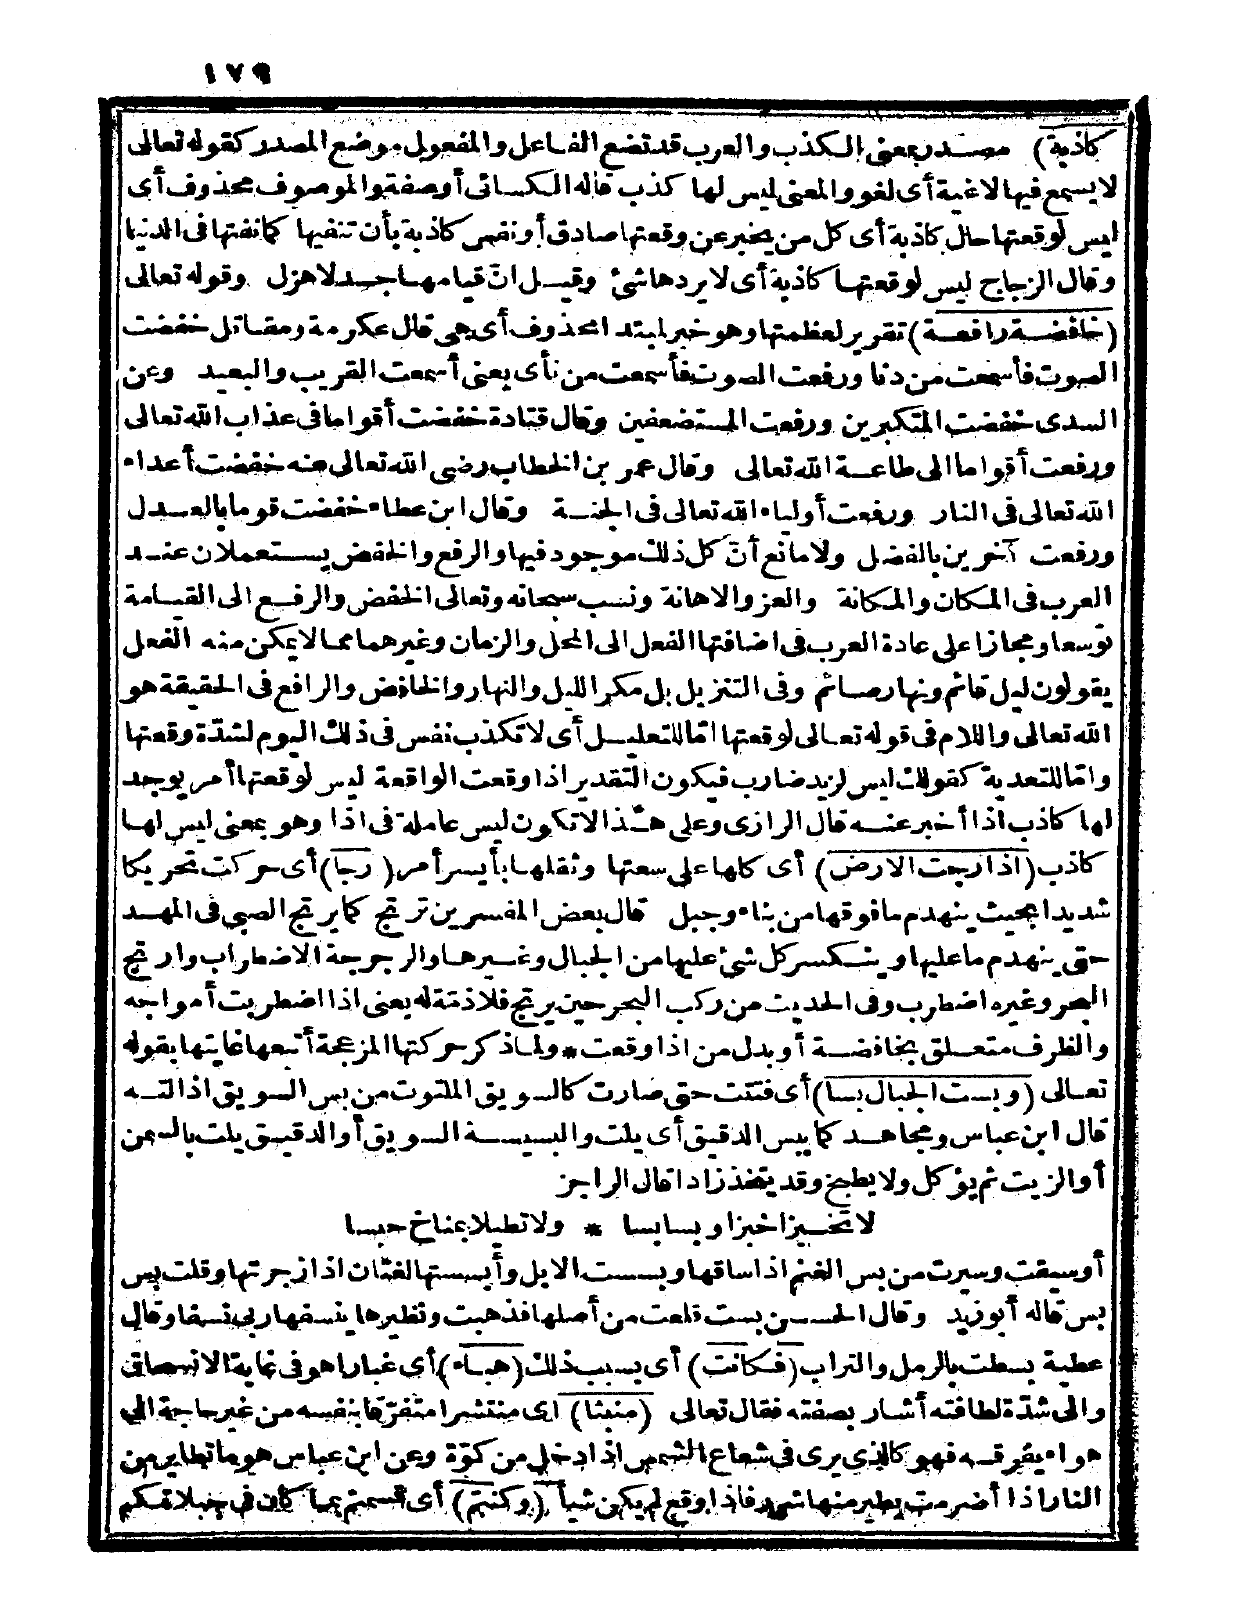 ١٧٩
كاذبة) مصدر بمعنى الكذب والعرب قد تضع الفاعل والمفعول موضع المصدر كقوله تعالى
لا يسمع فيها لاغية أى لغو والمعنى ليس لها كذب قاله الكسائى أو صفة والموصوف محذوف أى
ليس لوقعتها حال كاذبة أى كل من يخبر عن وقعتها صادق أو نفس كاذبة بأن تنفيها كما نفتها فى الدنيا
وقال الزجاج ليس لوقعتها كاذبة أى لا يردها شئ وقيل انّ قيامها جد لا هزل وقوله تعالى
(خافضة رافعة) تقرير لعظمتها وهو خبر لمبتدا محذوف أى هى قال عكرمة ومقاتل خفضت
الصوت فأسمعت من دنا ورفعت الصوت فأسمعت من نأى يعنى أسمعت القريب والبعيد وعن
السدى خفضت المتكبرين ورفعت المستضعفين وقال قتادة خفضت أقواما فى عذاب الله تعالى
ورفعت أقواما الى طاعة الله تعالى وقال عمر بن الخطاب رضى الله تعالى عنه خفضت أعداء
الله تعالى فى النار ورفعت أولياء الله تعالى فى الجنة وقال ابن عطاء خفضت قوما بالعدل
ورفعت آخرين بالفضل ولا مانع أنّ كل ذلك موجود فيها والرفع والخفض يستعملان عند
العرب فى المكان والمكانة والعز والاهانة ونسب سبحانه وتعالى الخفض والرفع الى القيامة
توسعا ومجازا على عادة العرب فى اضافتها الفعل الى المحل والزمان وغيرهما مما لا يمكن منه الفعل
يقولون ليل قائم ونهار صائم وفى التنزيل بل مكر الليل والنهار والخافض والرافع فى الحقيقة هو
الله تعالى واللام فى قوله تعالى لوقعتها امّا للتعليل أى لا تكذب نفس فى ذلك اليوم لشدّة وقعتها
وامّا للتعدية كقولك ليس لزيد ضارب فيكون التقدير اذا وقعت الواقعة ليس لوقعتها أمر يوجد
لها كاذب اذا أخبر عنه قال الرازى وعلى هذا لا تكون ليس عاملة فى اذا وهو بمعنى ليس لها
كاذب (اذا رجت الارض) أى كلها على سعتها وثقلها بأيسر أمر (رجا) أى حركت تحريكا
شديدا بحيث ينهدم ما فوقها من بناء وجبل قال بعض المفسرين ترتج كما يرتج الصبى فى المهد
حتى ينهدم ما عليها وينكسر كل شئ عليها من الجبال وغيرها والرجرجة الاضطراب وارتج
البحر وغيره اضطرب وفى الحديث من ركب البحر حين يرتج فلا ذمّة له يعنى اذا اضطربت أمواجه
والظرف متعلق بخافضة أو بدل من اذا وقعت * ولما ذكر حركتها المزعجة أتبعها غايتها بقوله
تعالى (وبست الجبال بسا) أى فتتت حتى صارت كالسويق الملتوت من بس السويق اذا لته
قال ابن عباس ومجاهد كما يبس الدقيق أى يلت والبسيسة السويق أو الدقيق يلت بالسمن
أو الزيت ثم يؤكل ولا يطبخ وقد يتخذ زادا قال الراجز
لا تخبزا خبزا وبسا بسا * ولا تطيلا بمناخ حبسا
أو سيقت وسيرت من بس الغنم اذا ساقها وبست الابل وأبستها لغتان اذا زجرتها وقلت بس
بس قاله أبو زيد وقال الحسن بست قلعت من أصلها فذهبت ونظيرها ينسفها ربى نسفا وقال
عطية بسطت بالرمل والتراب (فكانت) أى بسبب ذلك (هباء) أى غبارا هو فى غاية الانسحاق
والى شدّة لطافته أشار بصفته فقال تعالى (منبثا) أى منتشرا متفرّقا بنفسه من غير حاجة الى
هواء يفرقه فهو كالذى يرى فى شعاع الشمس اذا دخل من كوّة وعن ابن عباس هو ما تطاير من
النار اذا أضرمت يطير منها شرر فاذا وقع لم يكن شيأ (وكنتم) أى قسمتم بما كان فى جبلاتكم